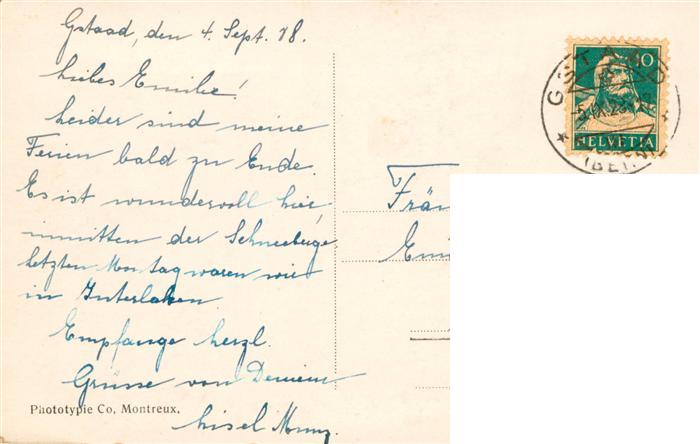 Gstaad, den 4. Sept. 28.
Liebes Emilie!
Leider sind meine
Ferien bald zu Ende.
Es ist wundervoll hier
inmitten der Schneeberge
letzten Montag waren wir
in Interlaken
Empfange herzl.
Grüsse von Deinem
Lisel
Phototypie Co, Montreux.
10
HELVETIA
GSTAAD
(BERN)
Fräu
Emi